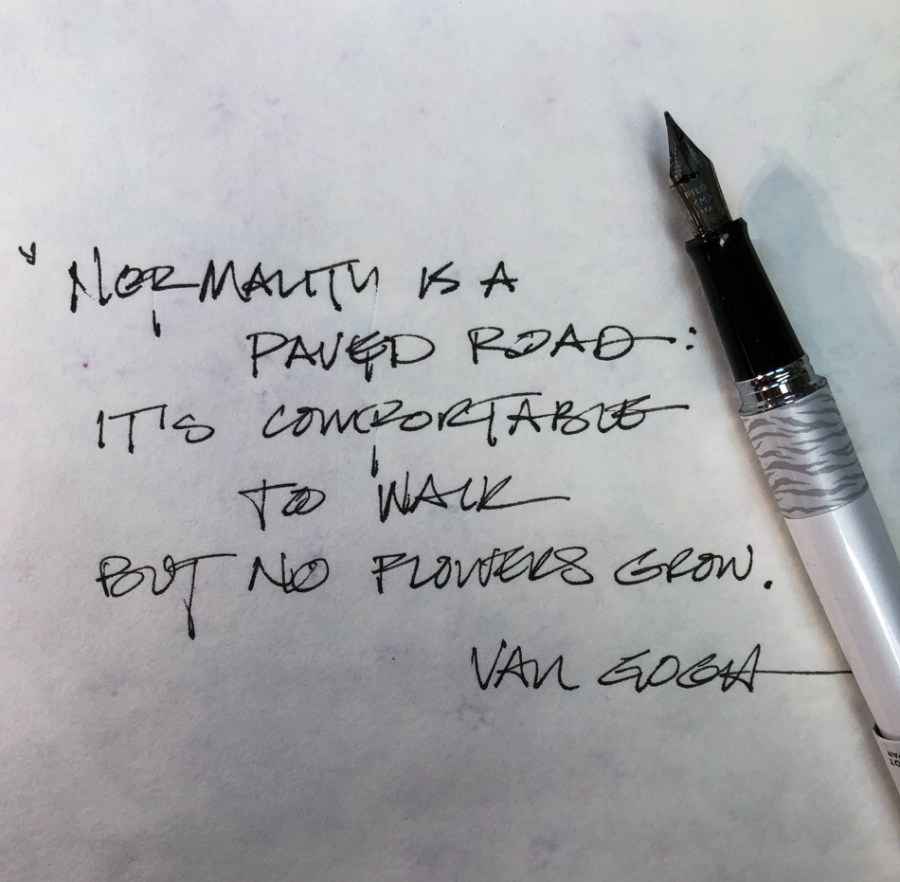 "NORMALITY IS A
PAVED ROAD:
IT'S COMFORTABLE
TO WALK
BUT NO FLOWERS GROW.
VAN GOGH